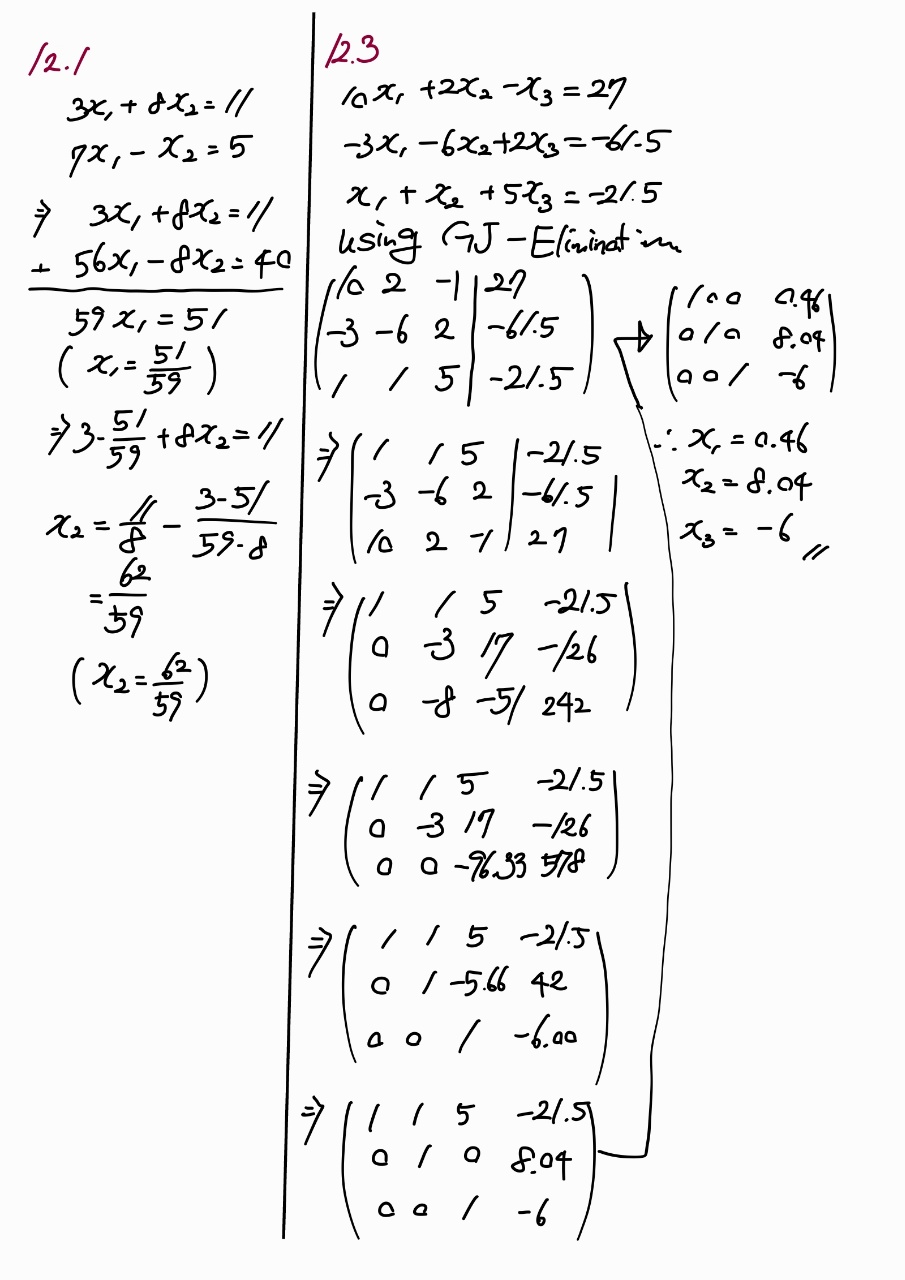 12.1
3x₁ + 8x₂ = 11
7x₁ - x₂ = 5
⇒ 3x₁ + 8x₂ = 11
+ 56x₁ - 8x₂ = 40
59x₁ = 51
( x₁ = 51/59 )
⇒ 3·51/59 + 8x₂ = 11
x₂ = 11/8 - 3·51/59·8
= 62/59
( x₂ = 62/59 )
12.3
10x₁ + 2x₂ - x₃ = 27
-3x₁ - 6x₂ + 2x₃ = -61.5
x₁ + x₂ + 5x₃ = -21.5
using GJ-Elimination
10 2 -1 | 27
-3 -6 2 | -61.5
1 1 5 | -21.5
⇒ 1 1 5 | -21.5
-3 -6 2 | -61.5
10 2 -1 | 27
⇒ 1 1 5 -21.5
0 -3 17 -126
0 -8 -51 242
⇒ 1 1 5 -21.5
0 -3 17 -126
0 0 -96.33 578
⇒ 1 1 5 -21.5
0 1 -5.66 42
0 0 1 -6.00
⇒ 1 1 5 -21.5
0 1 0 8.04
0 0 1 -6
→ 1 0 0 0.46
0 1 0 8.04
0 0 1 -6
∴ x₁ = 0.46
x₂ = 8.04
x₃ = -6 //